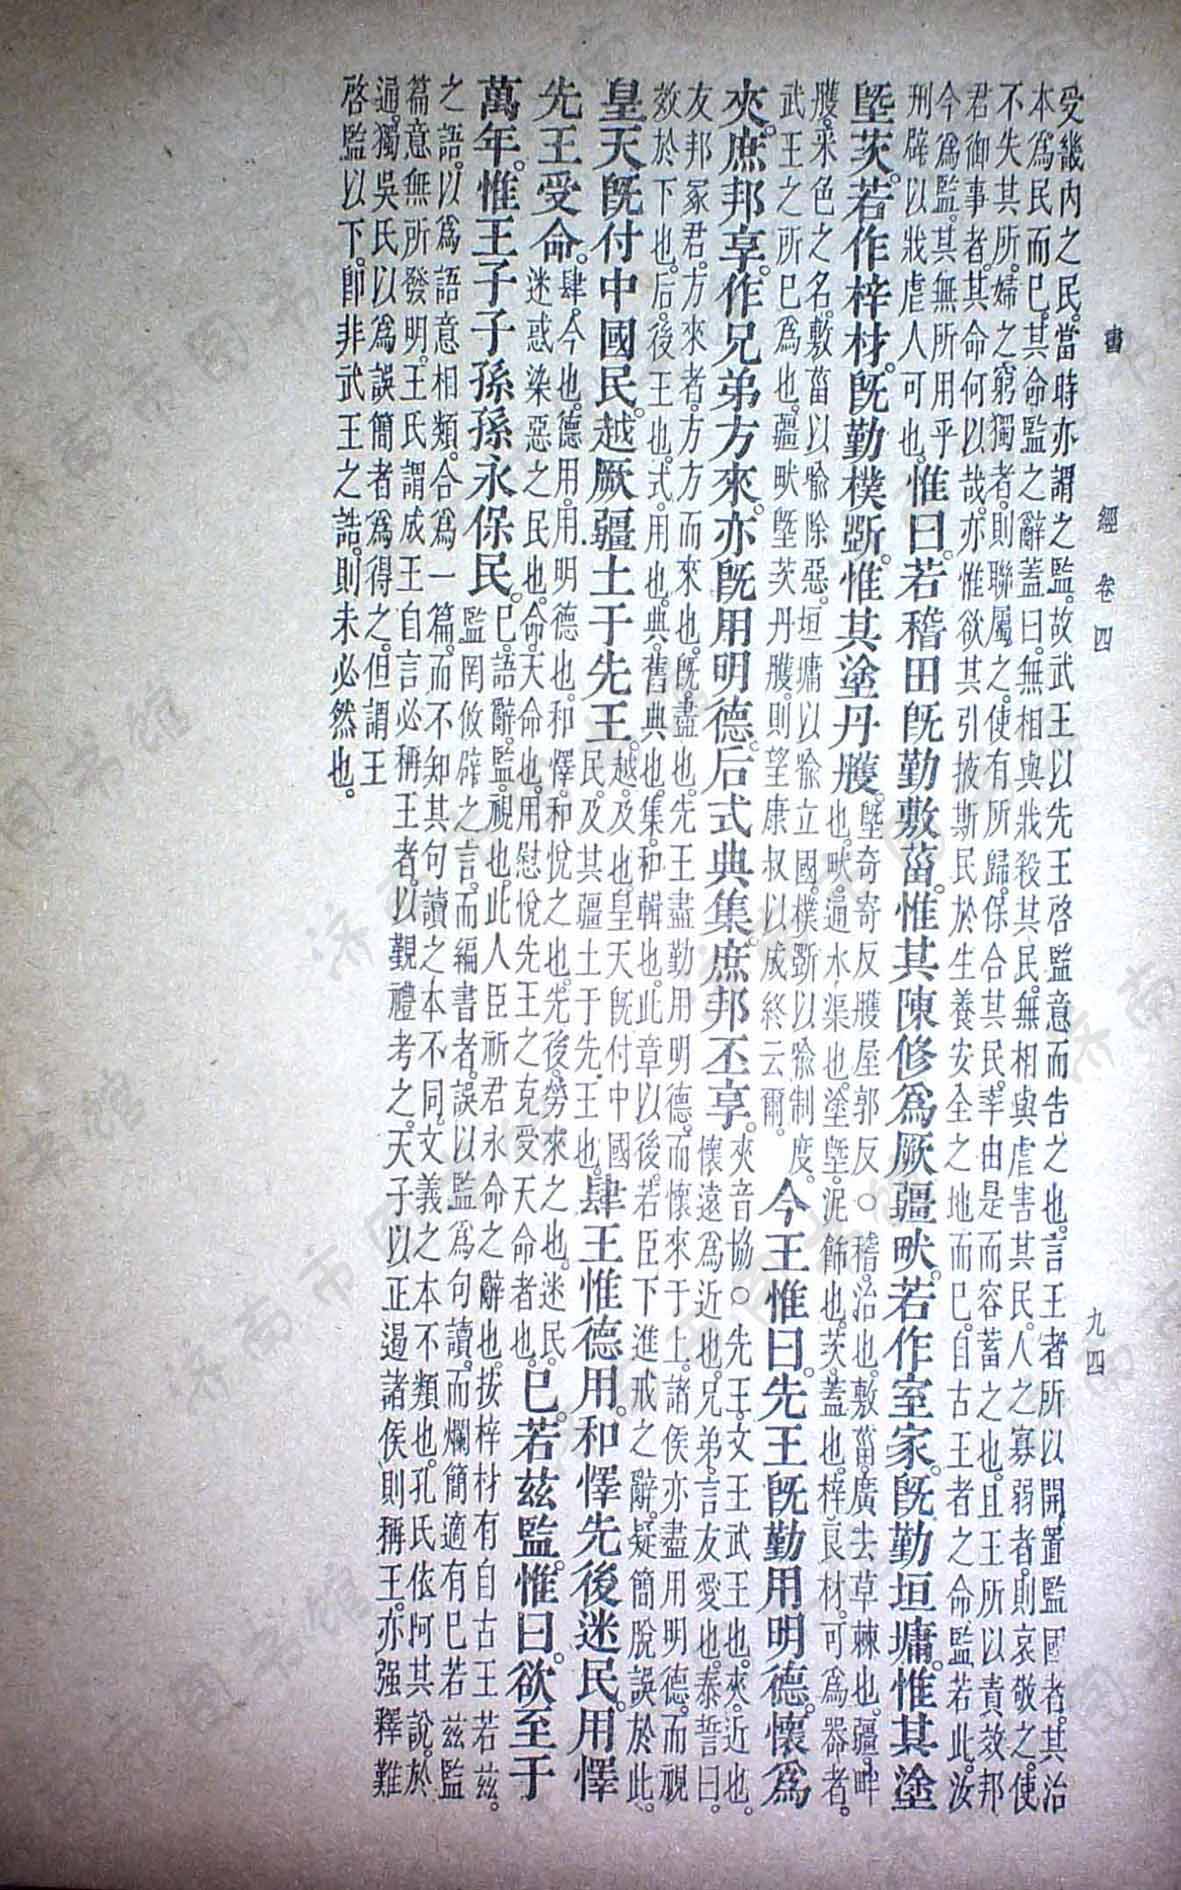 書經 卷四 九四
受畿內之民。當時亦謂之監。故武王以先王啓監意而告之也。言王者所以開置監國者。其治
本爲民而已。其命監之辭蓋曰。無相與戕殺其民。無相與虐害其民。人之寡弱者。則哀敬之。使
不失其所。婦之窮獨者。則聯屬之。使有所歸。保合其民。率由是而容蓄之也。且王所以責效邦
君御事者。其命何以哉。亦惟欲其引掖斯民於生養安全之地而已。自古王者之命監若此。汝
今爲監。其無所用乎
刑辟以戕虐人可也。
惟曰。若稽田既勤敷菑。惟其陳修爲厥疆畎。若作室家。既勤垣墉。惟其塗
塈茨。若作梓材。既勤樸斲。惟其塗丹雘。
塈奇寄反雘屋郭反○稽。治也。敷菑。廣去草棘也。疆。畔
也。畎。通水渠也。塗塈。泥飾也。茨。蓋也。梓。良材。可爲器者。
雘。采色之名。敷菑以喩除惡。垣墉以喩立國。樸斲以喩制度。
武王之所已爲也。疆畎塈茨丹雘。則望康叔以成終云爾。
今王惟曰。先王既勤用明德。懷爲
夾。庶邦享。作兄弟方來。亦既用明德。后式典集。庶邦丕享。
夾音協○先王。文王武王也。夾。近也。
懷遠爲近也。兄弟。言友愛也。泰誓曰。
友邦冢君。方來者。方方而來也。既。盡也。先王盡勤用明德。而懷來于上。諸侯亦盡用明德。而視
效於下也。后。後王也。式。用也。典。舊典也。集。和輯也。此章以後。若臣下進戒之辭。疑簡脫誤於此。
皇天既付中國民。越厥疆土于先王。
越。及也。皇天既付中國
民。及其疆土于先王也。
肆王惟德用。和懌先後迷民。用懌
先王受命。
肆。今也。德用。用明德也。和懌。和悅之也。先後。勞來之也。迷民。
迷惑染惡之民也。命。天命也。用慰悅先王之克受天命者也。
已。若茲監。惟曰。欲至于
萬年。惟王子子孫孫永保民。
已。語辭。監。視也。此人臣祈君永命之辭也。按梓材有自古王若茲。
監罔攸辟之言。而編書者。誤以監爲句讀。而爛簡適有已若茲監
之語。以爲語意相類。合爲一篇。而不知其句讀之本不同。文義之本不類也。孔氏依阿其說。於
篇意無所發明。王氏謂成王自言必稱王者。以覲禮考之。天子以正遏諸侯則稱王。亦强釋難
通。獨吳氏以爲誤簡者爲得之。但謂王
啓監以下。卽非武王之誥。則未必然也。
济南市图书馆